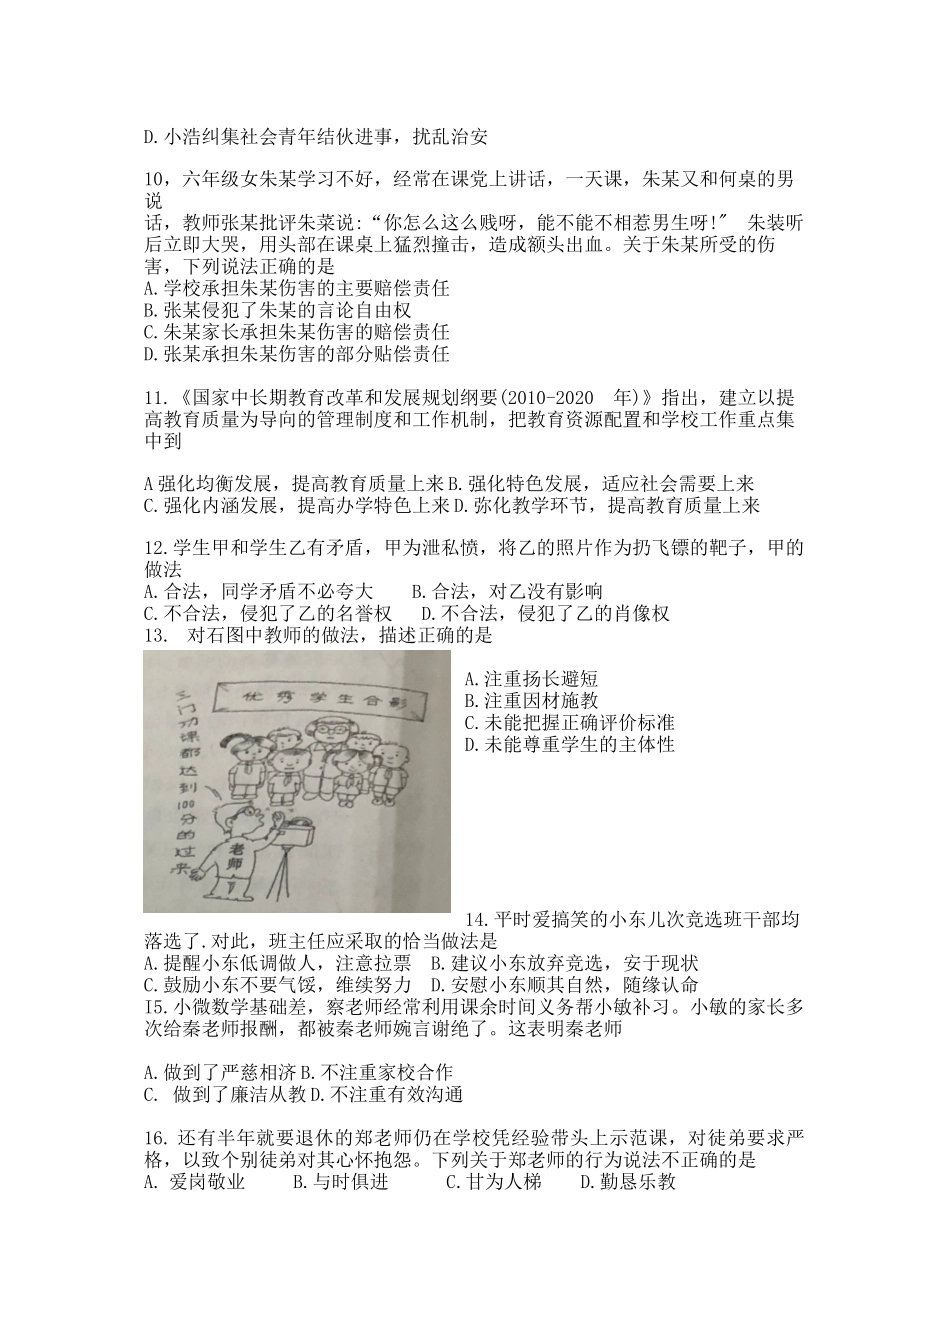 D.小浩纠集社会青年结伙进事，扰乱治安
10，六年级女朱某学习不好，经常在课党上讲话，一天课，朱某又和何桌的男
说
话，教师张某批评朱菜说:“你怎么这么贱呀，能不能不相惹男生呀!″ 朱装听
后立即大哭，用头部在课桌上猛烈撞击，造成额头出血。关于朱某所受的伤
害，下列说法正确的是
A.学校承担朱某伤害的主要赔偿责任
B.张某侵犯了朱某的言论自由权
C.朱某家长承担朱某伤害的赔偿责任
D.张某承担朱某伤害的部分贴偿责任
11.《国家中长期教育改革和发展规划纲要(2010-2020 年)》指出，建立以提
高教育质量为导向的管理制度和工作机制，把教育资源配置和学校工作重点集
中到
A 强化均衡发展，提高教育质量上来 B.强化特色发展，适应社会需要上来
C.强化内涵发展，提高办学特色上来 D.弥化教学环节，提高教育质量上来
12.学生甲和学生乙有矛盾，甲为泄私愤，将乙的照片作为扔飞镖的靶子，甲的
做法
A.合法，同学矛盾不必夸大 B.合法，对乙没有影响
C.不合法，侵犯了乙的名誉权 D.不合法，侵犯了乙的肖像权
13. 对石图中教师的做法，描述正确的是
优秀学生合影
三门功课都达到100分的过来
老师
A.注重扬长避短
B.注重因材施教
C.未能把握正确评价标准
D.未能尊重学生的主体性
14.平时爱搞笑的小东儿次竞选班干部均
落选了.对此，班主任应采取的恰当做法是
A.提醒小东低调做人，注意拉票 B.建议小东放弃竞选，安于现状
C.鼓励小东不要气馁，维续努力 D.安慰小东顺其自然，随缘认命
I5.小微数学基础差，察老师经常利用课余时间义务帮小敏补习。小敏的家长多
次给秦老师报酬，都被秦老师婉言谢绝了。这表明秦老师
A.做到了严慈相济 B.不注重家校合作
C. 做到了廉洁从教 D.不注重有效沟通
16. 还有半年就要退休的郑老师仍在学校凭经验带头上示范课，对徒弟要求严
格，以致个别徒弟对其心怀抱怨。下列关于郑老师的行为说法不正确的是
A. 爱岗敬业 B.与时俱进 C.甘为人梯 D.勤恳乐教